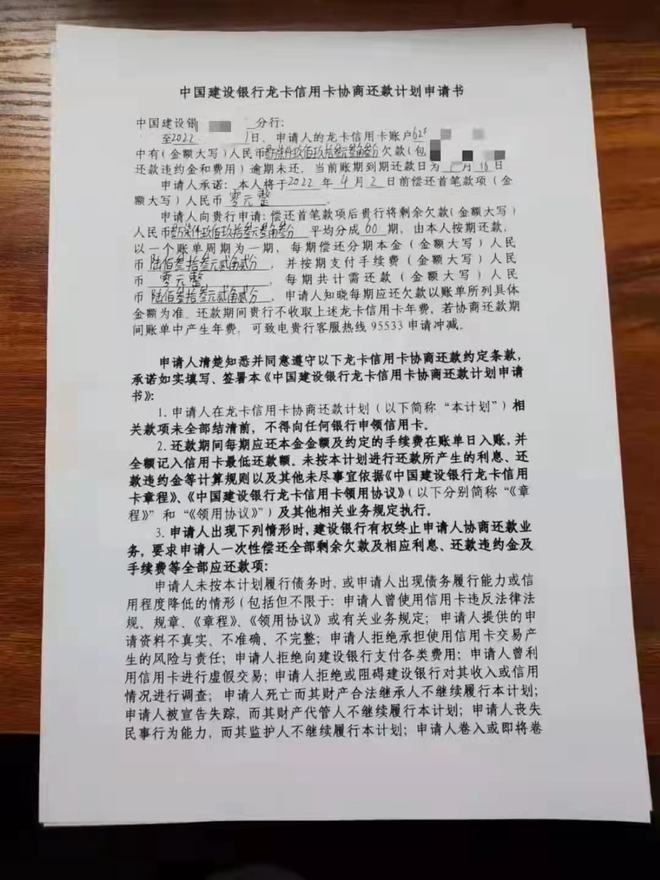 中国建设银行龙卡信用卡协商还款计划申请书
中国建设银 分行:
至2022 1日,申请人的龙卡信用卡账户62
中有(金额大写)人民币 仟玖佰玖拾叁元 角叁分欠款(包
还款违约金和费用)逾期未还,当前账期到期还款日为 月18日
申请人承诺:本人将于2022年4月2日前偿还首笔款项(金
额大写)人民币 零元整 。
申请人向贵行申请:偿还首笔款项后贵行将剩余欠款(金额大写)
人民币 仟玖佰玖拾叁元 角叁分 平均分成60期,由本人按期还款,
以一个账单周期为一期,每期偿还分期本金(金额大写)人民
币陆佰叁拾叁元贰角贰分,并按期支付手续费(金额大写)人民
币 零元整 ,每期共计需还款(金额大写)人民
币陆佰叁拾叁元贰角贰分,申请人知晓每期应还欠款以账单所列具体
金额为准。还款期间贵行不收取上述龙卡信用卡年费,若协商还款期
间账单中产生年费,可致电贵行客服热线95533申请冲减。
申请人清楚知悉并同意遵守以下龙卡信用卡协商还款约定条款,
承诺如实填写、签署本《中国建设银行龙卡信用卡协商还款计划申请
书》:
1.申请人在龙卡信用卡协商还款计划(以下简称“本计划”)相
关款项未全部结清前,不得向任何银行申领信用卡。
2.还款期间每期应还本金金额及约定的手续费在账单日入账,并
全额记入信用卡最低还款额。未按本计划进行还款所产生的利息、还款
违约金等计算规则以及其他未尽事宜依据《中国建设银行龙卡信用
卡章程》、《中国建设银行龙卡信用卡领用协议》(以下分别简称“《章
程》”和“《领用协议》”)及其他相关业务规定执行。
3.申请人出现下列情形时,建设银行有权终止申请人协商还款业
务,要求申请人一次性偿还全部剩余欠款及相应利息、还款违约金及
手续费等全部应还款项:
申请人未按本计划履行债务时、或申请人出现债务履行能力或信
用程度降低的情形(包括但不限于:申请人曾使用信用卡违反法律法
规、规章、《章程》、《领用协议》或有关业务规定;申请人提供的申
请资料不真实、不准确、不完整;申请人拒绝承担使用信用卡交易产
生的风险与责任;申请人拒绝向建设银行支付各类费用;申请人曾利
用信用卡进行虚假交易;申请人拒绝或阻碍建设银行对其收入或信用
情况进行调查;申请人死亡而其财产合法继承人不继续履行本计划;
申请人被宣告失踪,而其财产代管人不继续履行本计划;申请人丧失
民事行为能力,而其监护人不继续履行本计划;申请人卷入或即将卷